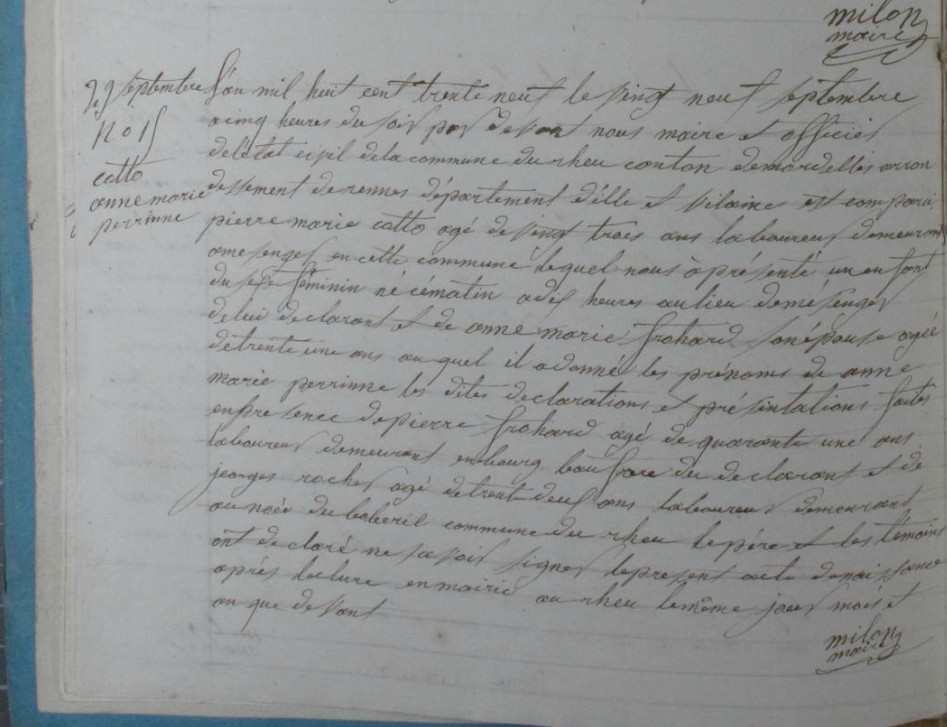 milon
maire
29 septembre
N o 15
catto
anne marie
perrinne
L'an mil huit cent trente neuf le vingt neuf septembre
a cinq heures du soir par devant nous maire et officier
deletat civil dela commune du rheu conton demordelles arron
dessement de rennes département d'ille et vilaine est comparu
pierre marie catto agé de vingt trois ans laboureur demeurant
en cette commune lequel nous à présenté un enfant
du sexe féminin né cématin a dix heures au lieu
delui declarant et de anne marie frohard sonépouse agée
detrente une ans au quel il a donné les prénoms de anne
marie perrinne les dites declarations et présintations faites
enpresence depierre frohard agé de quarante une ans
laboureur demeurant enbourg beaufrere du declarant et de
jeorges rocher agé detrent deux ans laboureur demeurant
au noée du baberil commune du rheu lepére et les témoins
ont declaré ne savoir signer lepresent acte denaissance
aprés lecture enmairie au rheu lemême jour mois et
an que devant
milon
maire